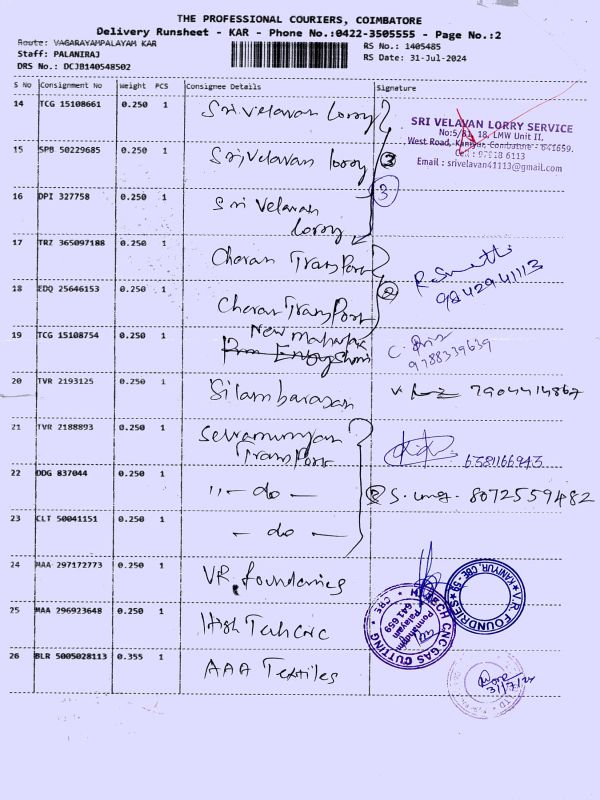 THE PROFESSIONAL COURIERS, COIMBATORE
Delivery Runsheet - KAR - Phone No.:0422-3505555 - Page No.:2
Route: VAGARAYAMPALAYAM KAR
Staff: PALANIRAJ
DRS No.: DCJB140548502
RS No.: 1405485
RS Date: 31-Jul-2024
S No Consignment No Weight PCS Consignee Details Signature
14 TCG 15108661 0.250 1 Sri Velavan lorry
SRI VELAVAN LORRY SERVICE
No:5/81, 18, LMW Unit II,
West Road, Kaniyur, Coimbatore - 641659.
Cell : 97918 6113
Email : srivelavan41113@gmail.com
15 SPB 50229685 0.250 1 Sri Velavan lorry 3
3
16 DPI 327758 0.250 1 Sri Velavan
lorry
17 TRZ 365097188 0.250 1 Cheran TransPort
9842941113
18 EDQ 25646153 0.250 1 Cheran TransPort 2
19 TCG 15108754 0.250 1 New
9788339639
20 TVR 2193125 0.250 1 Silambarasan 7904414867
21 TVR 2188893 0.250 1 Selvamurugan
TransPort
6381166943
22 DDG 837044 0.250 1 " - do - 2 8072559482
23 CLT 50041151 0.250 1 - do -
24 MAA 297172773 0.250 1 VR. foundaries
V.R. FOUNDRIES
KANIYUR, CBE - 59
25 MAA 296923648 0.250 1 High Tech cnc
HI-TECH CNC GAS CUTTING
CBE
641 659
26 BLR 5005028113 0.355 1 AAA Textiles
31/7/24